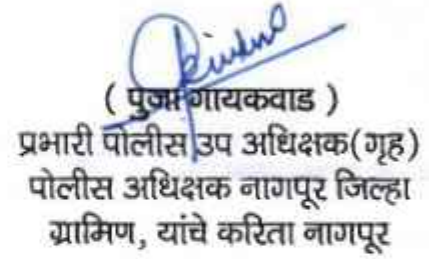 ( पुजा गायकवाड )
प्रभारी पोलीस उप अधिक्षक(गृह)
पोलीस अधिक्षक नागपूर जिल्हा
ग्रामिण, यांचे करिता नागपूर